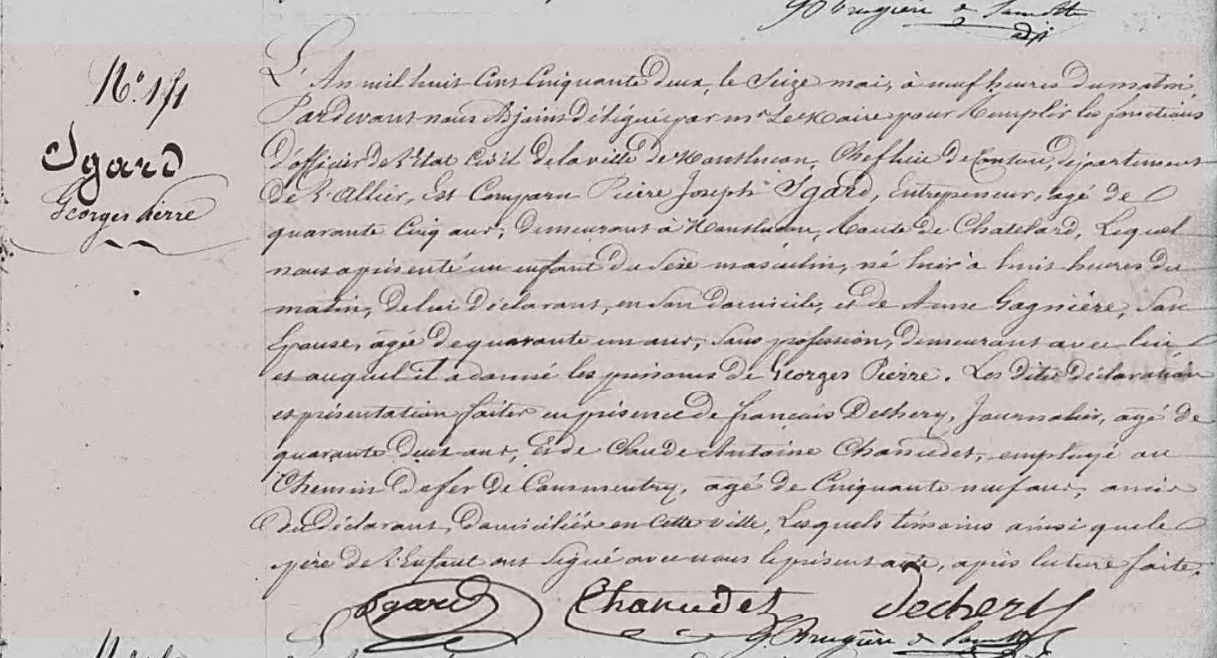 G. Brugière de Lamotte
adjt
N° 171
Igard
Georges Pierre
L'An mil huit cent cinquante deux, le seize mai, à neuf heures du matin,
Pardevant nous Adjoint délégué par mr Le Maire pour remplir les fonctions
d'officier de l'Etat Civil de la ville de Montluçon, Chef lieu de Canton, département
de l'Allier, Est Comparu Pierre Joseph Igard, Entrepreneur, agé de
quarante cinq ans, demeurant à Montluçon, route de Chatelard, Lequel
nous a présenté un enfant du sexe masculin, né hier à huit heures du
matin, de lui déclarant, en son domicile, et de Anne Gagnière, son
Epouse, agée de quarante un ans, sans profession, demeurant avec lui
et auquel il a donné les prénoms de Georges Pierre. Les dites déclaration
et présentation faites en présence de françois Dechery, Journalier, agé de
quarante deux ans, Et de Claude Antoine Chanudet, employé au
Chemin de fer de Commentry, agé de Cinquante neuf ans, amis
du Déclarant, domiciliés en cette ville, Lesquels témoins ainsi que le
père de l'Enfant ont signé avec nous le présent acte, après lecture faite.
Igard Chanudet Dechery
G. Brugière de Lamotte